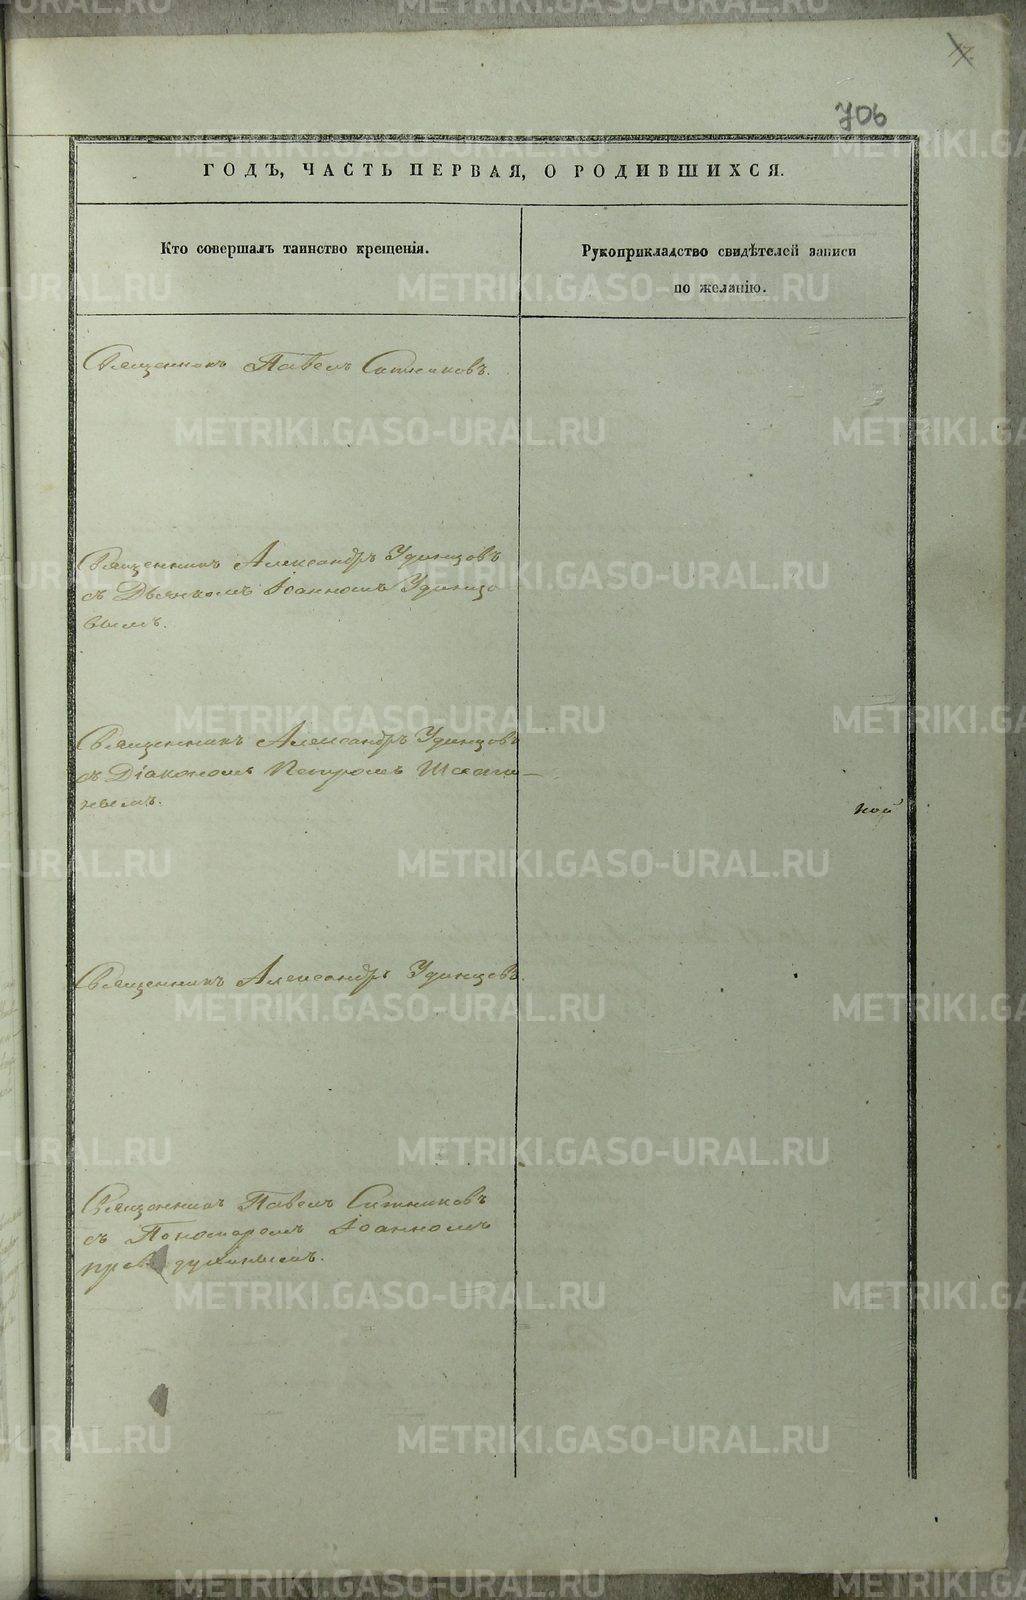 17.
706
ГОДЪ, ЧАСТЬ ПЕРВАЯ, О РОДИВШИХСЯ.
Кто совершалъ таинство крещенія.
Рукоприкладство свидѣтелей записи
по желанію.
Священникъ Павелъ Ситниковъ.
Священникъ Александръ Удинцовъ
съ Дьячкомъ Іоанномъ Удинцо
вымъ.
Священникъ Александръ Удинцовъ
съ Діакономъ Петромъ
ной
Священникъ Александръ Удинцовъ.
Священникъ Павелъ Ситниковъ
съ Пономаремъ Іоанномъ
METRIKI.GASO-URAL.RU